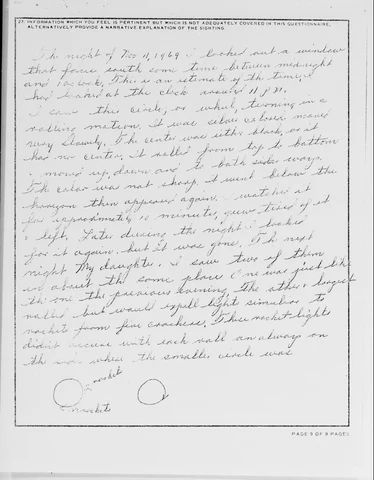 27. INFORMATION WHICH YOU FEEL IS PERTINENT BUT WHICH IS NOT ADEQUATELY COVERED IN THIS QUESTIONNAIRE.
ALTERNATIVELY PROVIDE A NARRATIVE EXPLANATION OF THE SIGHTING.
The night of Dec 11, 1969 I looked out a window
that faces south some time between midnight
and This is an estimate of the time, I
had looked at the clock around 11 P.M.
I saw this circle, or wheel, turning in a
rolling motion. It was silver colored moved
very slowly. The center was either black, or it
had no center, it rolled from top to bottom
moved up, down and to both sides ways.
The color was not sharp, it went below the
horizon then appeared again. I watched it
for approximately minutes, grew tired of it
& left. Later during the night I looked
for it again, but it was gone. The next
night My daughter & I saw two of them
in about the same place One was just like
the one the previous evening. The other & largest
rolled but would expell light similar to
rockets from fire crackers. These rocket lights
didn't occure with each roll am always on
the side where the smaller circle was
rockets
rockets
PAGE 9 OF 9 PAGES